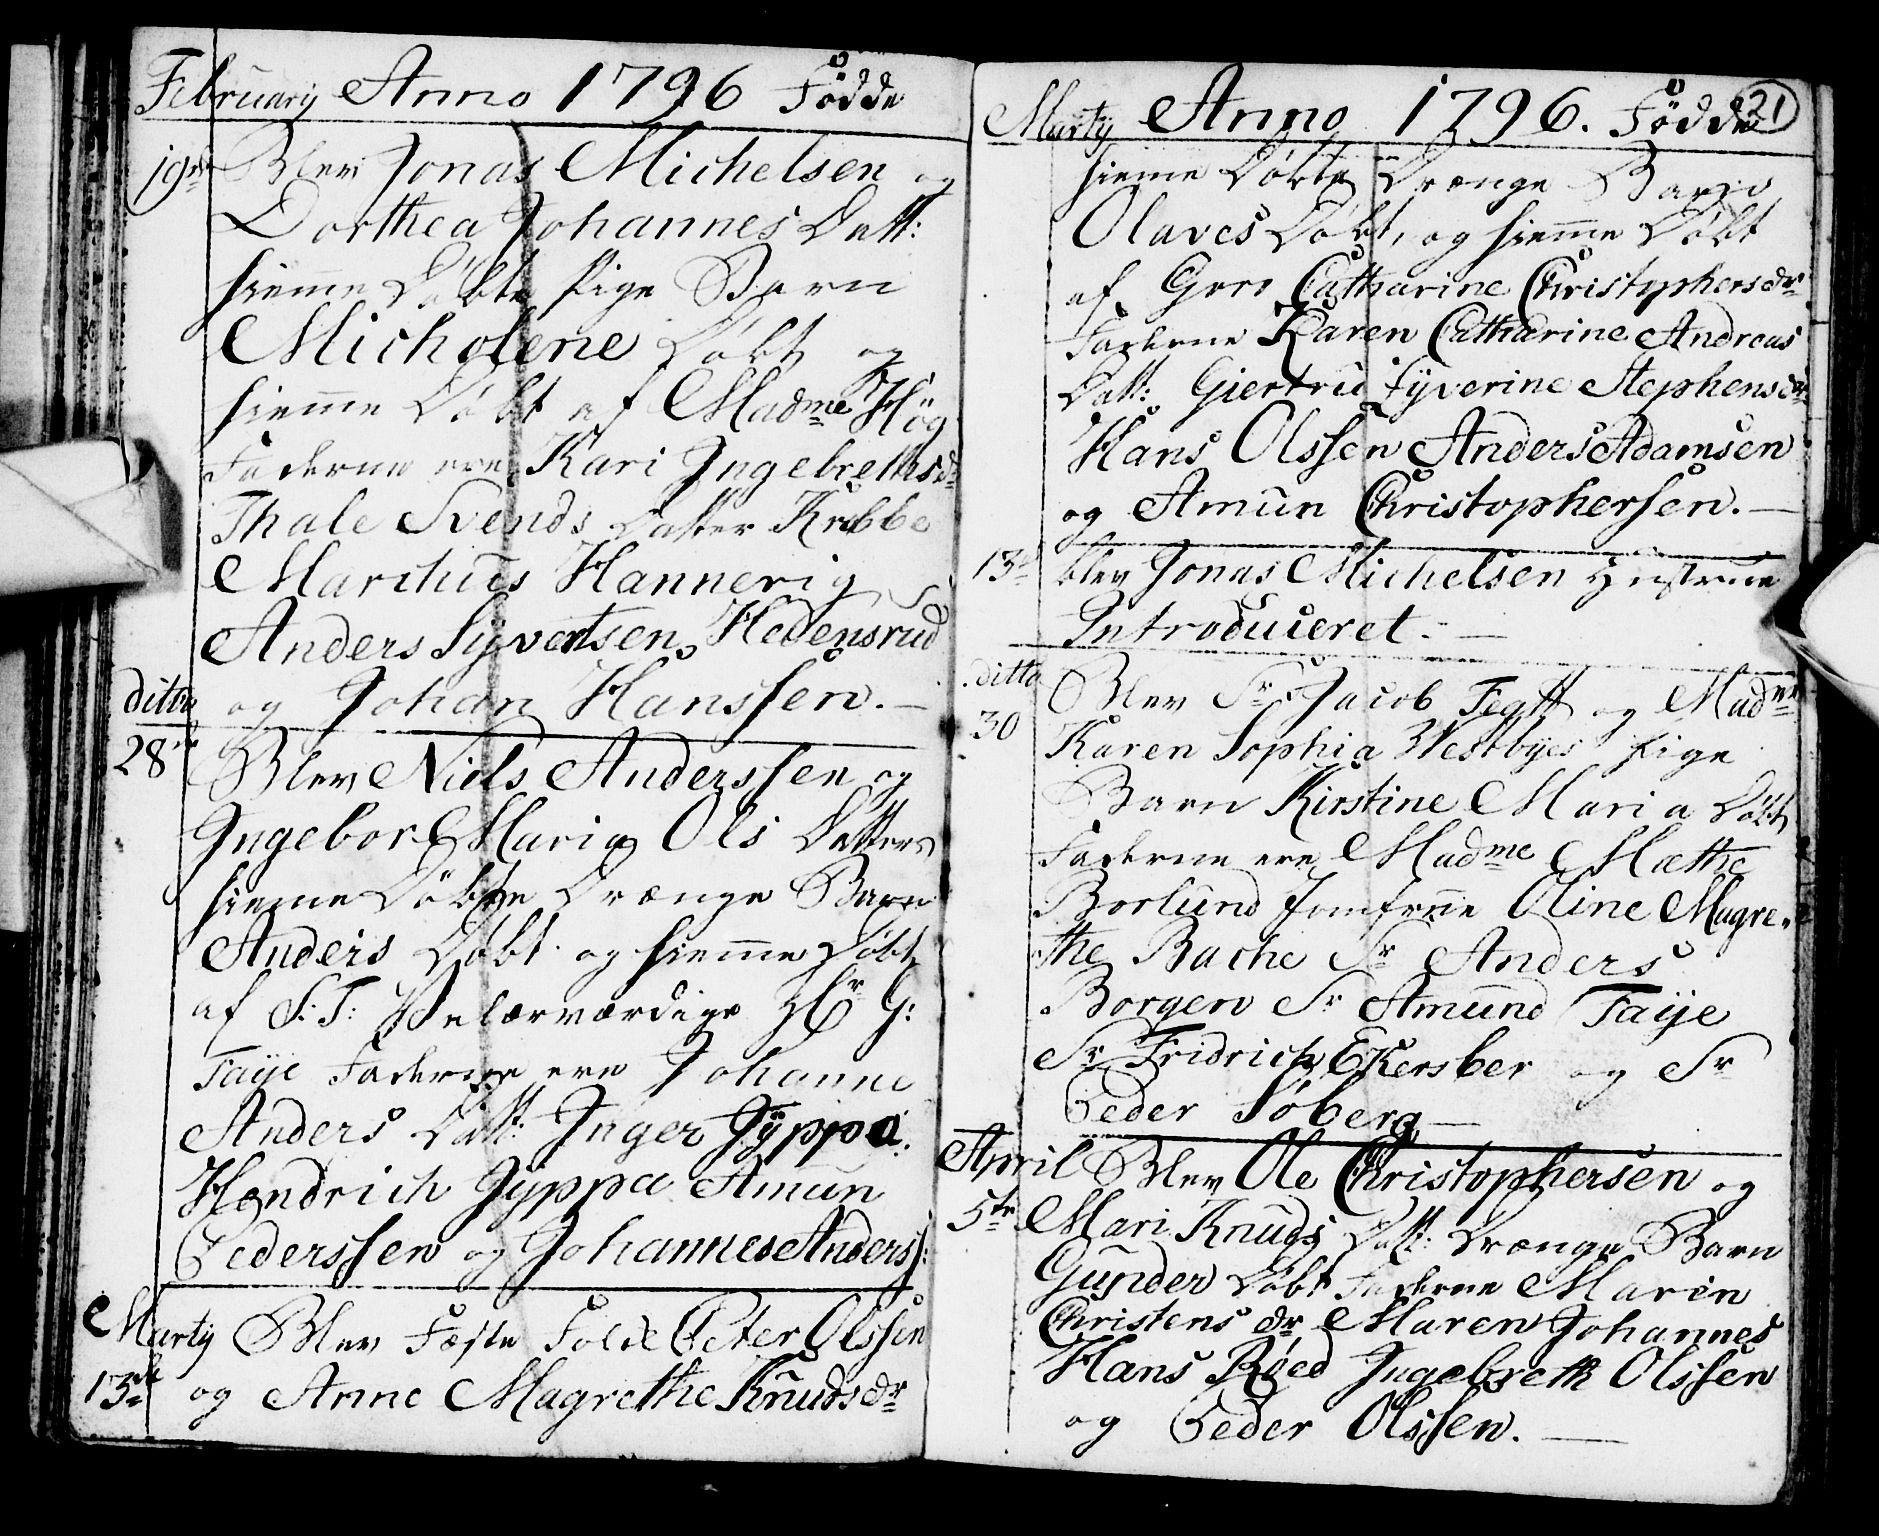 Februarij Anno 1796 Födde
19de Blev Jonas Michelsen og
Dorthea Johannes Datt:
hieme Döbte Pige Barn
Micholene Döbt og
hieme Döbt af Madme Hög
Fadderne ere Kari Ingebrethsdr
Thale Svends Datter Krebbe
Marchus Hannevig
Anders Syvertsen Hedensrud
og Johan Hanssen.
ditto
28de Blev Niels Anderssen og
Ingebor Maria Ols Datters
hieme Döbte Drænge Barn
Anders Döbt og hieme Döbt
af S: T: Velærværdige Hr G:
Taije Fadderne ere Johanne
Anders Datt: Inger Jyppa
Hendrich Jyppa Amun
Pederssen og Johannes Anders:
Martij Blev Fæste Folk Peter Olssen
13de og Anne Magrethe Knudsdr
Martij Anno 1796. Födde 21
hieme Döbte Drænge Barn
Olaves Döbt, og hieme Döbt
af Goro Catharine Christophersdr
Fadderne Karen Catharine Andreas
Datt: Giertru Syverine Stephensdr
Hans Olssen Anders Adamsen
og Amun Christophersen.
13d blev Jonas Michelsen Hustrue
Introduceret.
ditto Blev Sr Jacob Fegth og Madme
30 Karen Sophia Westbyes Pige
Barn Kirstine Maria Döbt
Fadderne ere Madme Mæthe
Borlund Jomfrue Oline Magre-
the Bache Sr Anders
Borgen Sr Amund Taije
Sr Fridrich Ekersber og Sr
Peder Söberg
April Blev Ole Christophersen og
5te Mari Knuds Datt: Drænge Barn
Gunder Döbt Fadderne Maren
Christens dr Maren Johannes
Hans Röed Ingebreth Olssen
og Peder Olssen.